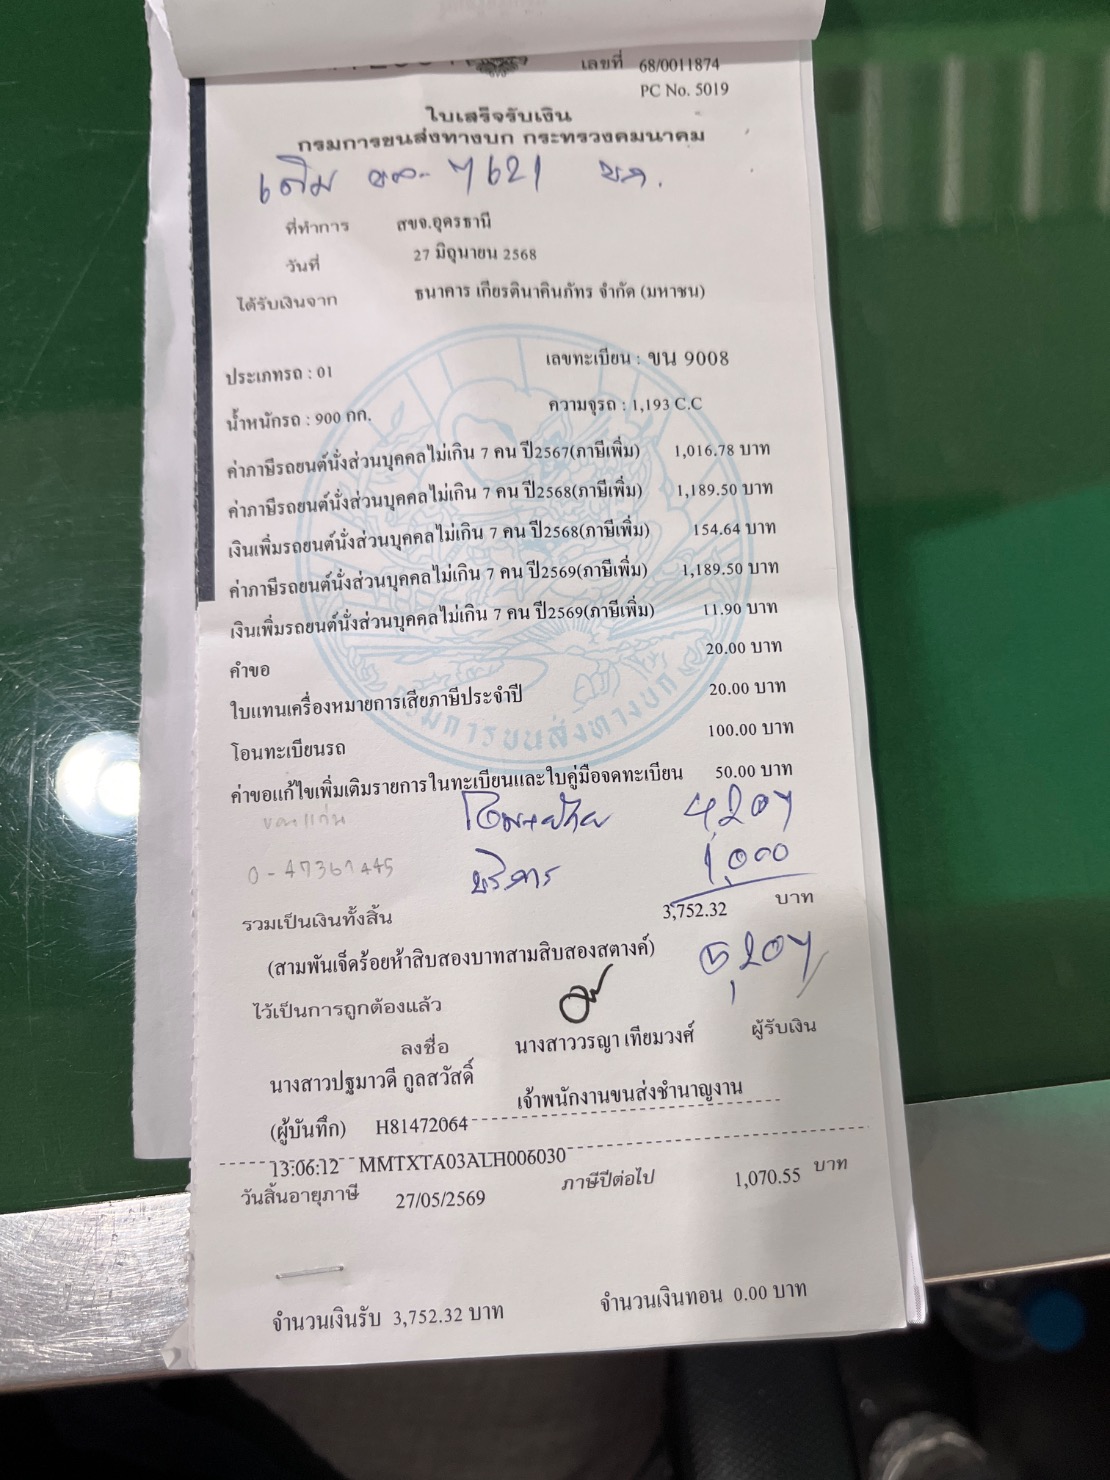 เลขที่ 68/0011874
PC No. 5019
ใบเสร็จรับเงิน
กรมการขนส่งทางบก กระทรวงคมนาคม
เดิม ขอ- 7621 ขก.
ที่ทำการ สขจ.อุดรธานี
วันที่ 27 มิถุนายน 2568
ได้รับเงินจาก ธนาคาร เกียรตินาคินภัทร จำกัด (มหาชน)
ประเภทรถ : 01 เลขทะเบียน : ขน 9008
น้ำหนักรถ : 900 กก. ความจุรถ : 1,193 C.C
ค่าภาษีรถยนต์นั่งส่วนบุคคลไม่เกิน 7 คน ปี2567(ภาษีเพิ่ม) 1,016.78 บาท
ค่าภาษีรถยนต์นั่งส่วนบุคคลไม่เกิน 7 คน ปี2568(ภาษีเพิ่ม) 1,189.50 บาท
เงินเพิ่มรถยนต์นั่งส่วนบุคคลไม่เกิน 7 คน ปี2568(ภาษีเพิ่ม) 154.64 บาท
ค่าภาษีรถยนต์นั่งส่วนบุคคลไม่เกิน 7 คน ปี2569(ภาษีเพิ่ม) 1,189.50 บาท
เงินเพิ่มรถยนต์นั่งส่วนบุคคลไม่เกิน 7 คน ปี2569(ภาษีเพิ่ม) 11.90 บาท
คำขอ 20.00 บาท
ใบแทนเครื่องหมายการเสียภาษีประจำปี 20.00 บาท
โอนทะเบียนรถ 100.00 บาท
ค่าขอแก้ไขเพิ่มเติมรายการในทะเบียนและใบคู่มือจดทะเบียน 50.00 บาท
กรมการขนส่งทางบก
ขอนแก่น โอน+ย้าย 4,207
0-47361445 บริการ 1,000
รวมเป็นเงินทั้งสิ้น 3,752.32 บาท
(สามพันเจ็ดร้อยห้าสิบสองบาทสามสิบสองสตางค์) 5,207
ไว้เป็นการถูกต้องแล้ว
ลงชื่อ นางสาววรญา เทียมวงศ์ ผู้รับเงิน
นางสาวปฐมาวดี กูลสวัสดิ์ เจ้าพนักงานขนส่งชำนาญงาน
(ผู้บันทึก) H81472064
13:06:12 MMTXTA03ALH006030
วันสิ้นอายุภาษี 27/05/2569 ภาษีปีต่อไป 1,070.55 บาท
จำนวนเงินรับ 3,752.32 บาท จำนวนเงินทอน 0.00 บาท